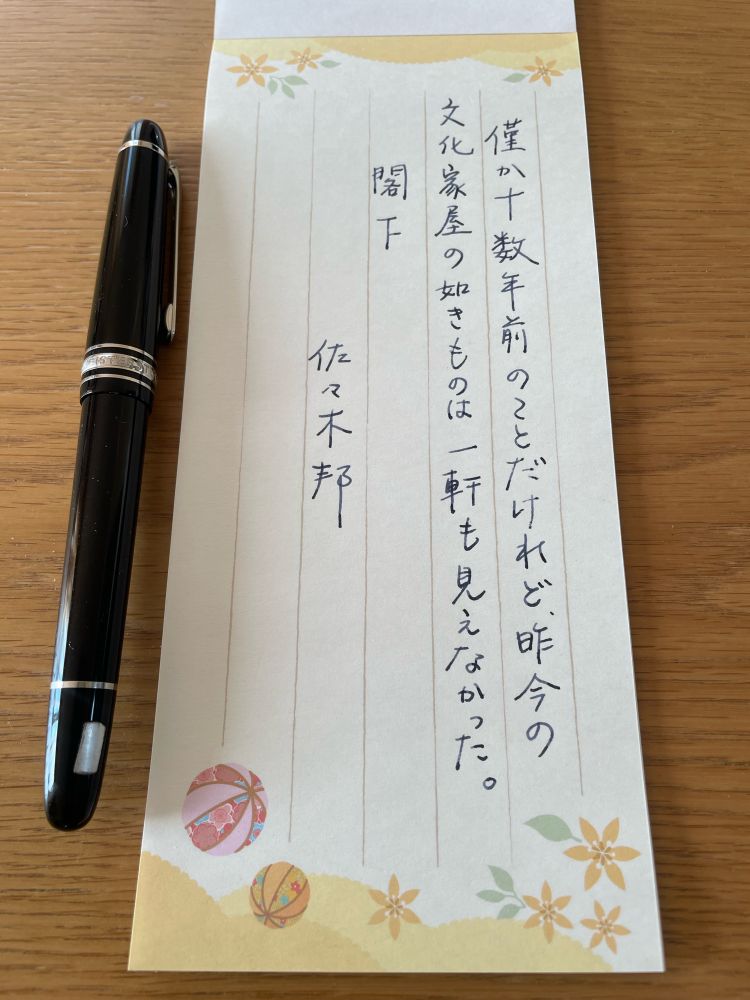 僅か十数年前のことだけれど、昨今の
文化家屋の如きものは一軒も見えなかった。
閣下
佐々木邦